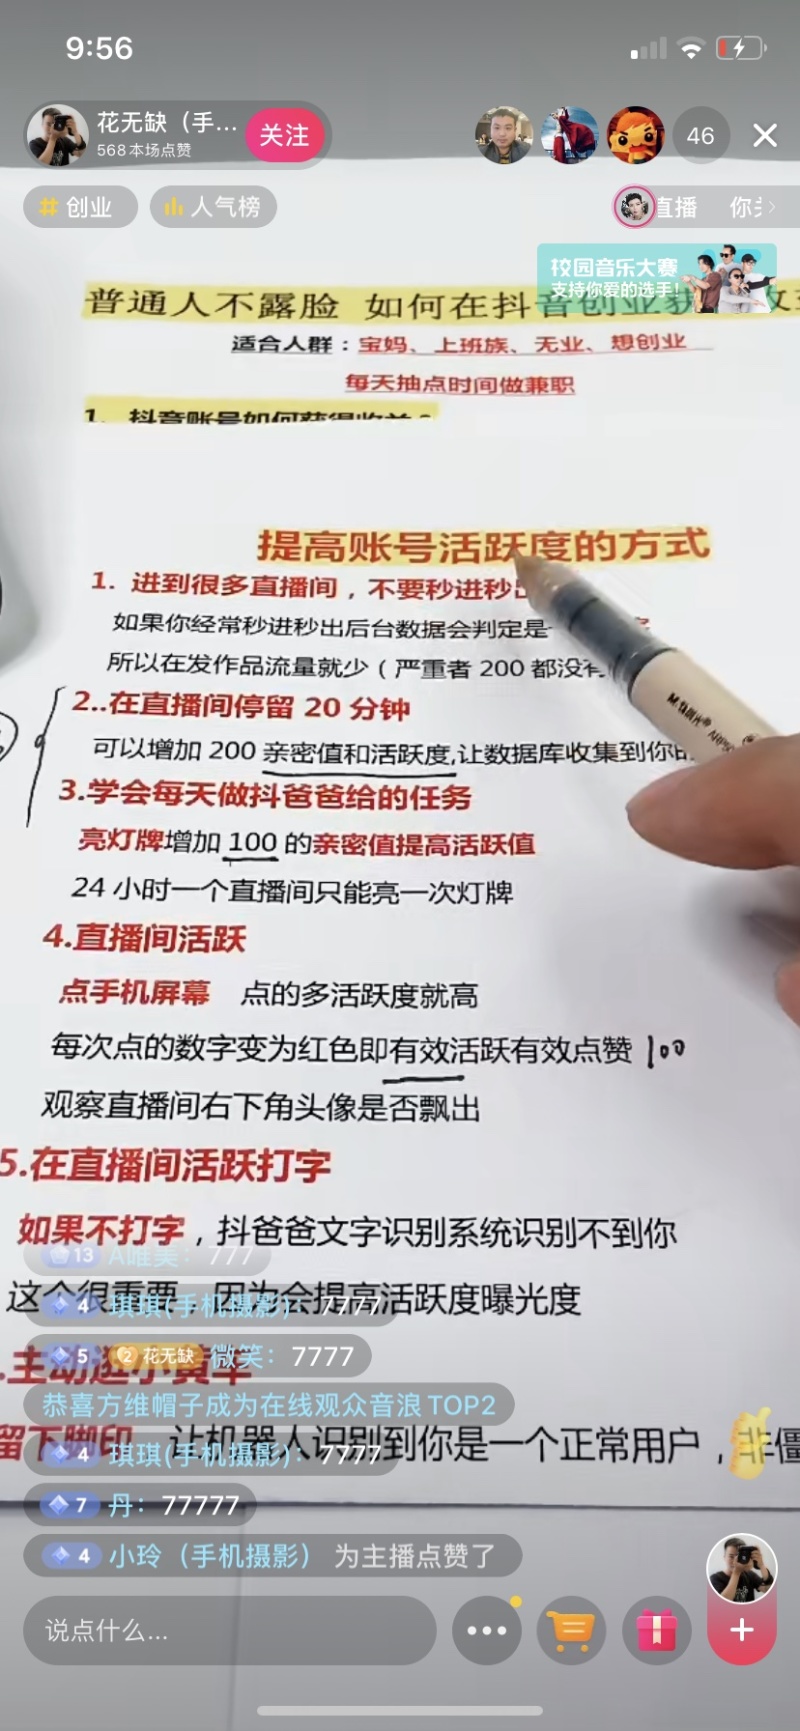 9:56
花无缺（手...
568本场点赞
关注
46
创业
人气榜
直播
校园音乐大赛
支持你爱的选手!
普通人不露脸 如何在抖音创业获
适合人群：宝妈、上班族、无业、想创业
每天抽点时间做兼职
1、抖音账号如何获得收益？
提高账号活跃度的方式
1. 进到很多直播间，不要秒进秒出
如果你经常秒进秒出后台数据会判定是
所以在发作品流量就少（严重者 200 都没有
2..在直播间停留 20 分钟
可以增加 200 亲密值和活跃度,让数据库收集到你
3.学会每天做抖爸爸给的任务
亮灯牌增加 100 的亲密值提高活跃值
24 小时一个直播间只能亮一次灯牌
4.直播间活跃
点手机屏幕 点的多活跃度就高
每次点的数字变为红色即有效活跃有效点赞 100
观察直播间右下角头像是否飘出
5.在直播间活跃打字
如果不打字，抖爸爸文字识别系统识别不到你
13 A唯美：777
这个很重要，因为会提高活跃度曝光度
4 琪琪(手机摄影)：7777
.主动逛小黄车
5 2 花无缺 微笑：7777
恭喜方维帽子成为在线观众音浪TOP2
留下脚印 让机器人识别到你是一个正常用户，非僵
4 琪琪(手机摄影)：7777
7 丹：77777
4 小玲（手机摄影） 为主播点赞了
说点什么...